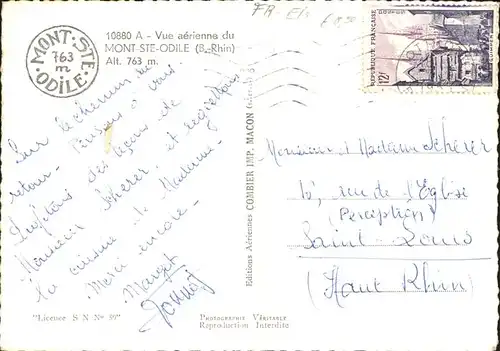 10880 A - Vue aérienne du
MONT-STE-ODILE (B.-Rhin)
Alt. 763 m.
MONT-STE-ODILE
763
m
FR
6850
REPUBLIQUE FRANÇAISE
POSTES
12F
Sur le chemin du
retour - Pensons à vous
Profitons des leçons de
Monsieur Scherer, et regrettons
la cuisine de Madame -
Merci encore -
Margot
"Licence S N N° 39"
Editions Aériennes COMBIER IMP. MACON
PHOTOGRAPHIE VÉRITABLE
Reproduction Interdite
Monsieur et Madame Scherer
15, rue de l'Eglise
(Perception)
Saint-Louis
(Haut Rhin)